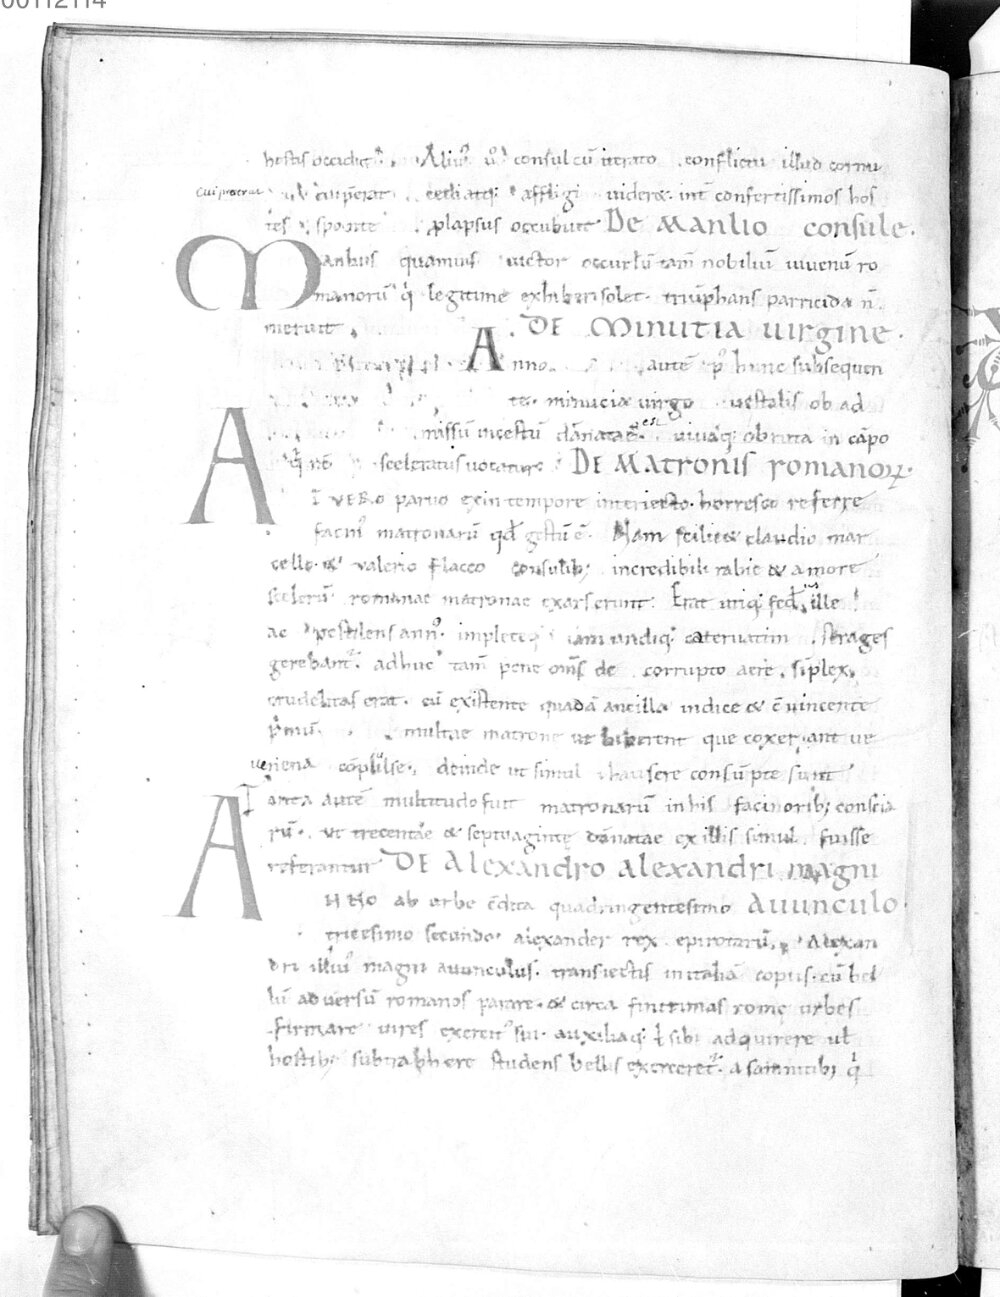 00112114
hostis occidit. Aliuſ ū consul cū iterato conflictu illud cornu
cui preerat cui p̄erat cedi atq; affligi uideret int confertissimos hos
tes sponte p̄lapsus occubuit DE MANLIO consule.
Manlius quamuis uictor occursū tam̄ nobiliū iuuenū ro
manorū q̇ legitime exhiberi solet. triūphans parricida n̄
meruit. DE MINUTIA uirgine.
Anno autē p̄ hunc subsequen
te. minucia uirgo uestalis ob ad
missū incestū dānata est. uiuaq; obruta in cāpo
q̇ nc̄ sceleratus uocatur. DE MATRONIS ROMANOꝜ.
AT VERO paruo exin tempore interiecto. horresco referre
facinꝰ matronarū qđ gestū ē. Nam
cello. & valerio flacco consulib; incredibili rabie & amore
scelerū romanae matronae exarserunt. Erat utiq; fed ille
ac pestilens annꝰ. inpleteq; iam undiq; cateruatim strages
gerebant. adhuc tam̄ pene om̄s de corrupto aere. siplex
crudelitas erat. cū existente quadā ancilla indice & cōuincente
p̄mū. multae matrone ut biberent que coxerant ue
uenena cōpulse. deinde ut simul hausere consūpte sunt
Tanta autē multitudo fuit matronarū in his facinorib; conscia
rū. ut trecentae & septuaginte dānatae ex illis simul fuisse
referantur DE Alexandro alexandri magni
ANNO ab urbe c̄dita quadringentesimo Auunculo.
tricesimo secundo. alexander rex epirotarū. Alexan
dri illiuꝰ magni auunculus. transiectis in italiā copiis. cū bel
lū aduersū romanos parare. & circa finitimas rome urbes
firmare uires exercitꝰ sui. auxiliaq; ł sibi adquirere uł
hostib; subtrahere studens bellis exerceret. a samnitib; q̇